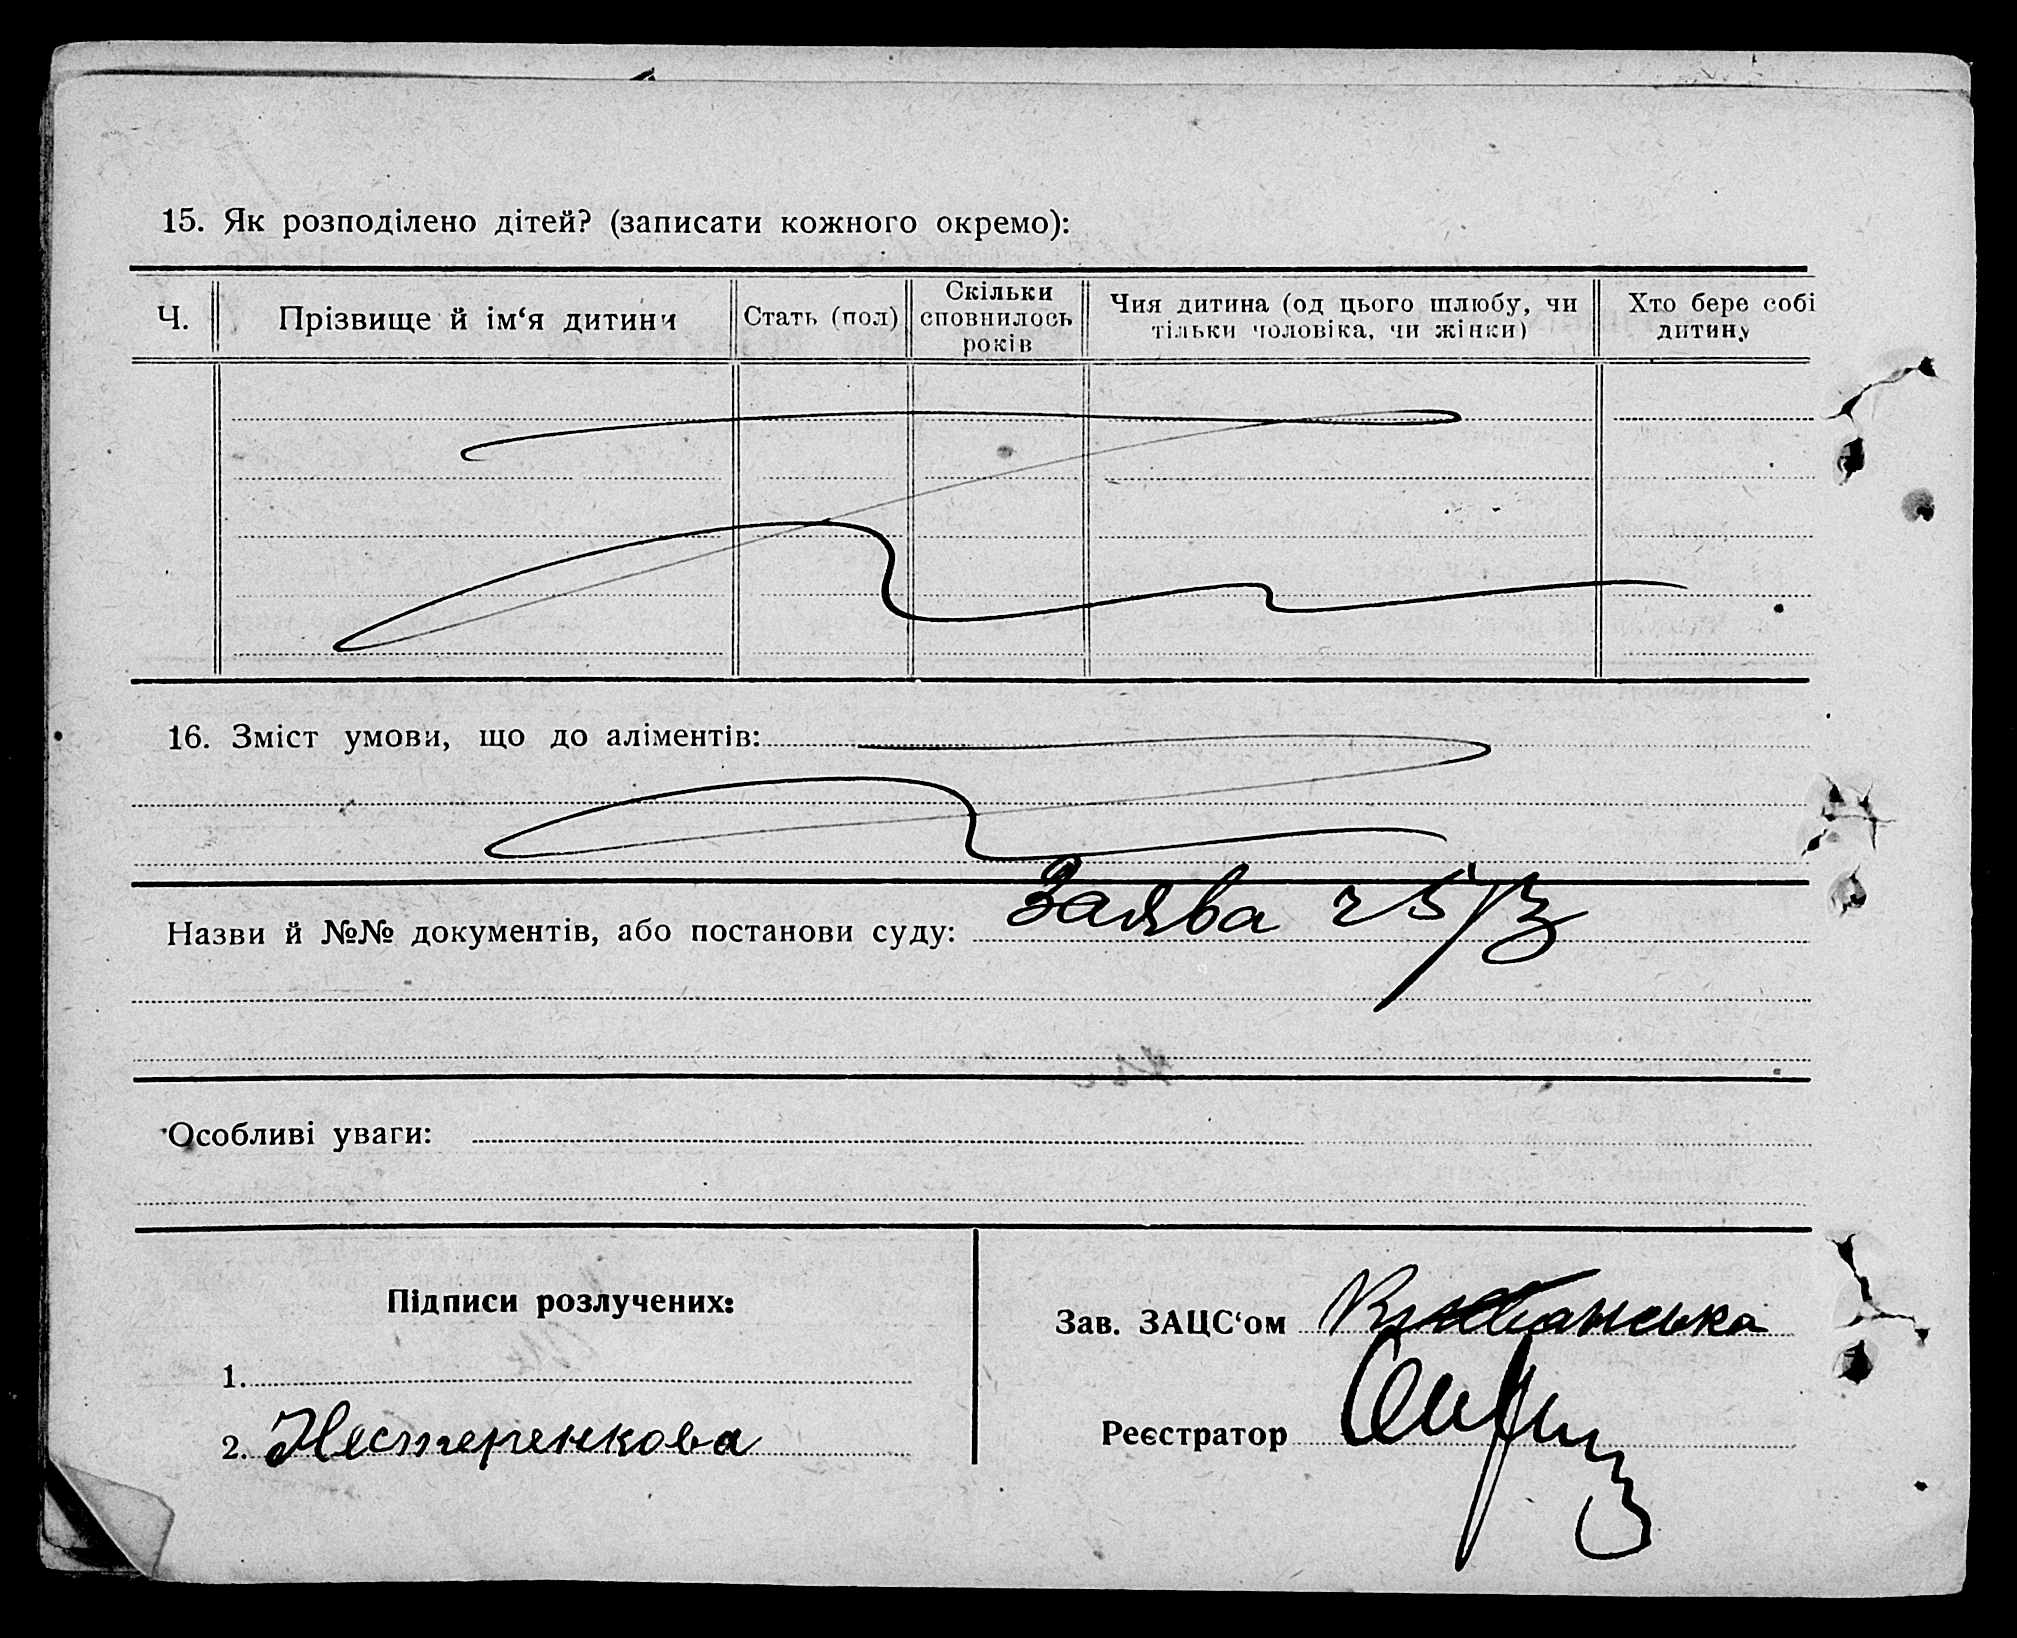 15. Як розподілено дітей? (записати кожного окремо):
Ч.
Прізвище й ім‘я дитини
Стать (пол)
Скільки
сповнилось
років
Чия дитина (од цього шлюбу, чи
тільки чоловіка, чи жінки)
Хто бере собі
дитину
16. Зміст умови, що до аліментів:
Назви й №№ документів, або постанови суду: Заява 25/3
Особливі уваги:
Підписи розлучених:
1.
2. Нестеренкова
Зав. ЗАЦС‘ом
Реєстратор